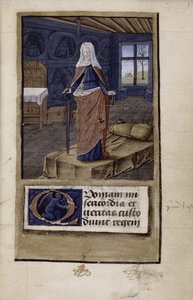 Domam mi
sericordia et
ueritas custo
diunt regem